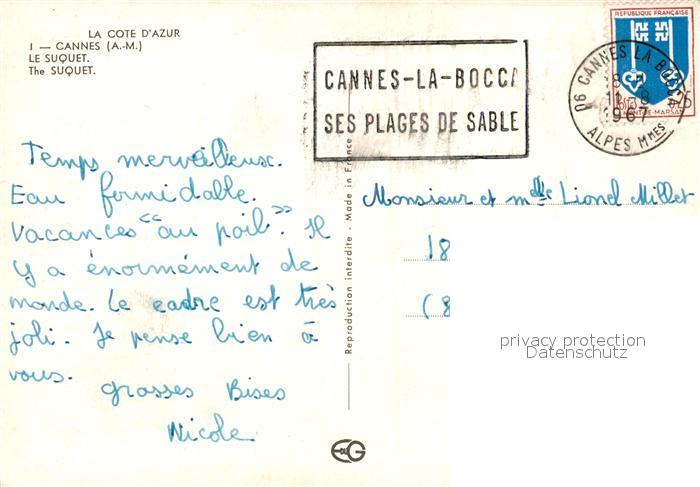 LA COTE D'AZUR
1 — CANNES (A.-M.)
LE SUQUET.
The SUQUET.
Temps merveilleux.
Eau formidable.
Vacances "au poil". Il
y a énormément de
monde. Le cadre est très
joli. Je pense bien à
vous.
grosses Bises
Nicole
Reproduction interdite - Made in France
REPUBLIQUE FRANÇAISE
MONT-DE-MARSAN
CANNES-LA-BOCCA
SES PLAGES DE SABLE
06 CANNES LA BOCCA
1967
ALPES MMES
Monsieur et Melle Lionel Millet
18
(8
privacy protection
Datenschutz